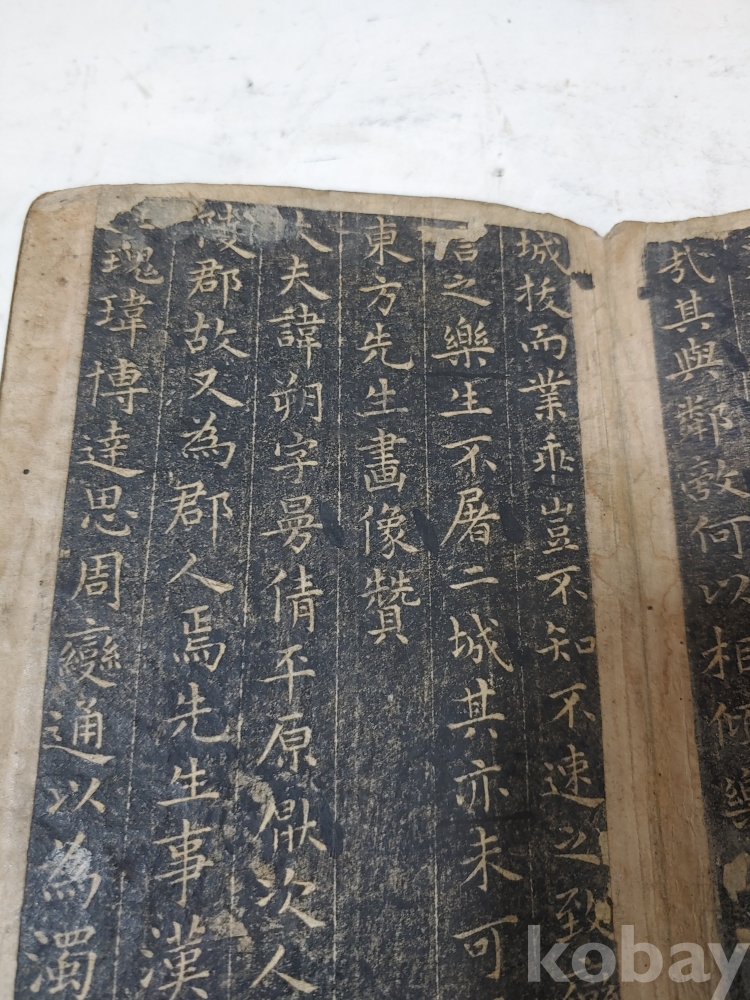 哉其與鄰敵何以相傾樂
城拔而業乖豈不知不速之致
信之樂生不屠二城其亦未可
東方先生畫像贊
大夫諱朔字曼倩平原厭次人
陵郡故又為郡人焉先生事漢
瑰瑋博達思周變通以為濁
kobay